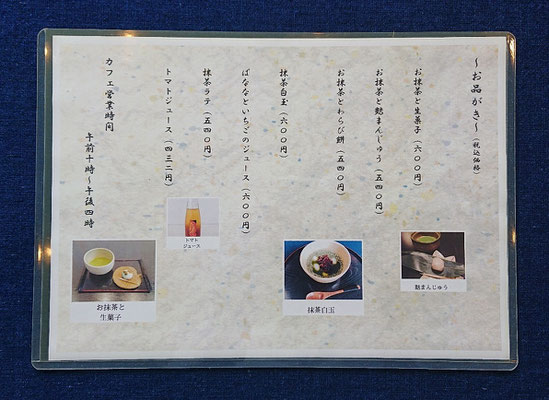 〜お品がき〜（税込価格）
お抹茶と生菓子（六〇〇円）
お抹茶と麩まんじゅう（五四〇円）
お抹茶とわらび餅（五四〇円）
抹茶白玉（六〇〇円）
ばななといちごのジュース（六〇〇円）
抹茶ラテ（五四〇円）
トマトジュース（四三二円）
カフェ営業時間
午前十時〜午後四時
麩まんじゅう
抹茶白玉
トマト
ジュース
お抹茶と
生菓子